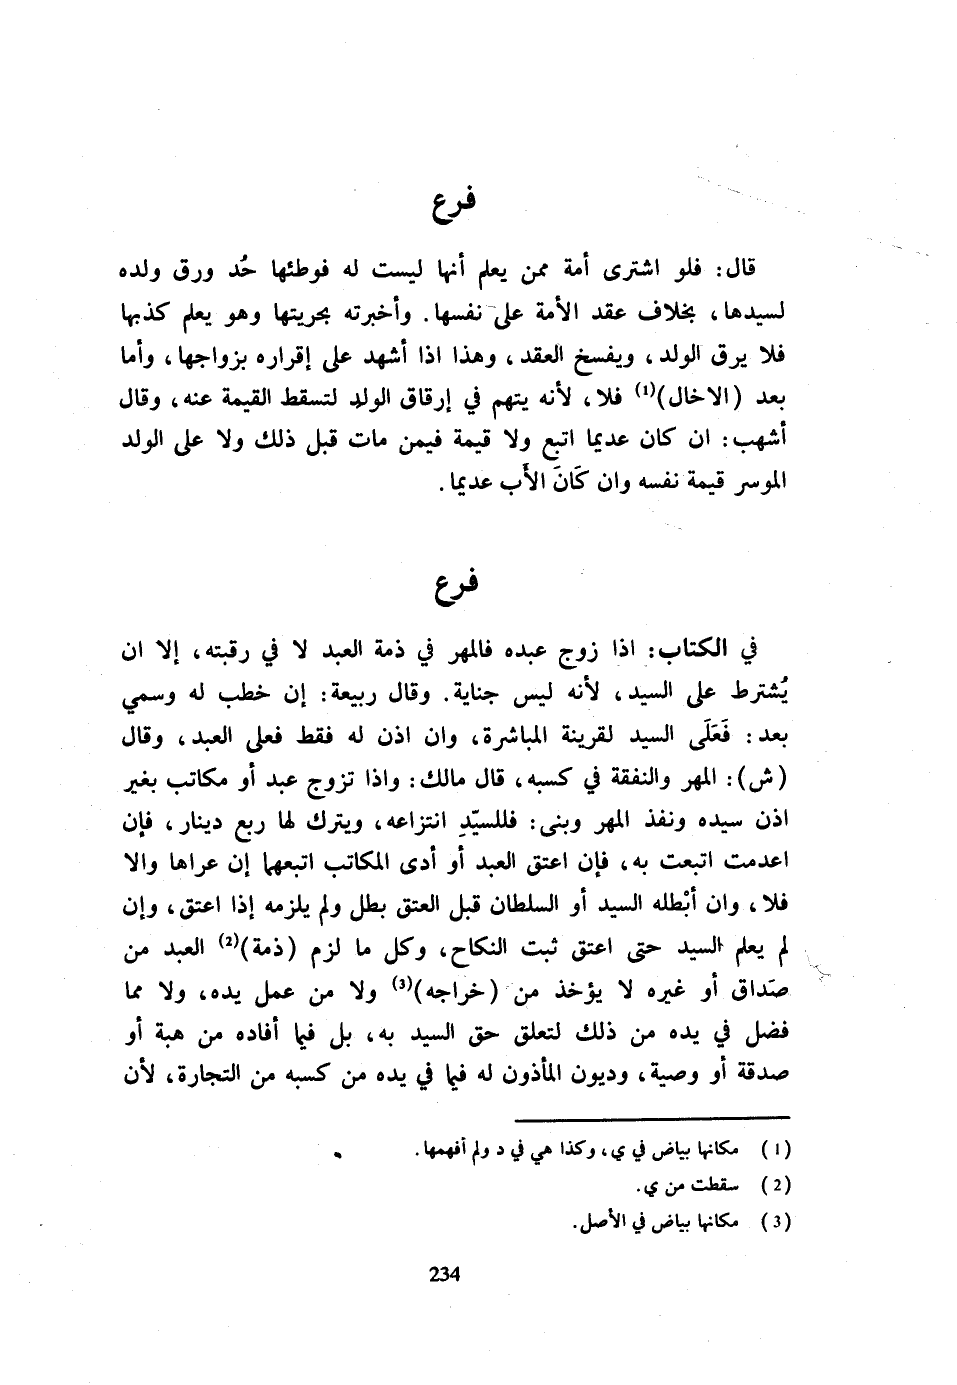 فرع
قال: فلو اشترى أمة ممن يعلم أنها ليست له فوطئها حُد ورق ولده
لسيدها، بخلاف عقد الأمة على نفسها. وأخبرته بحريتها وهو يعلم كذبها
فلا يرق الولد، ويفسخ العقد، وهذا اذا أشهد على إقراره بزواجها، وأما
بعد (الاخال)(1) فلا، لأنه يتهم في إرقاق الولد لتسقط القيمة عنه، وقال
أشهب: ان كان عديما اتبع ولا قيمة فيمن مات قبل ذلك ولا على الولد
الموسر قيمة نفسه وان كَانَ الأَب عديما.
فرع
في الكتاب: اذا زوج عبده فالمهر في ذمة العبد لا في رقبته، إلا ان
يُشترط على السيد، لأنه ليس جناية. وقال ربيعة: إن خطب له وسمي
بعد: فَعَلَى السيد لقرينة المباشرة، وان اذن له فقط فعلى العبد، وقال
(ش): المهر والنفقة في كسبه، قال مالك: واذا تزوج عبد أو مكاتب بغير
اذن سيده ونفذ المهر وبنى: فللسيّدِ انتزاعه، ويترك لها ربع دينار، فإن
اعدمت اتبعت به، فإن اعتق العبد أو أدى المكاتب اتبعهما إن عراها والا
فلا، وان أبْطله السيد أو السلطان قبل العتق بطل ولم يلزمه إذا اعتق، وإن
لم يعلم السيد حتى اعتق ثبت النكاح، وكل ما لزم (ذمة)(2) العبد من
صَداق أو غيره لا يؤخذ من (خراجه)(3) ولا من عمل يده، ولا مما
فضل في يده من ذلك لتعلق حق السيد به، بل فيما أفاده من هبة أو
صدقة أو وصية، وديون المأذون له فيما في يده من كسبه من التجارة، لأن
(1) مكانها بياض في ي، وكذا هي في د ولم أفهمها.
(2) سقطت من ي.
(3) مكانها بياض في الأصل.
234